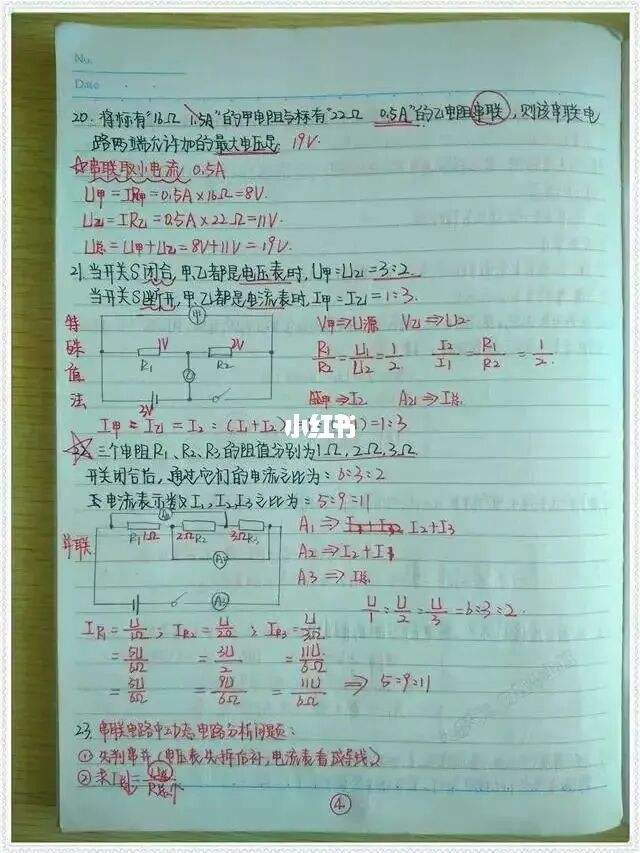 No.
Date
20. 将标有"16Ω 1.5A"的甲电阻与标有"22Ω 0.5A"的乙电阻串联, 则该串联电
路两端允许加的最大电压是 19V.
☆串联取小电流 0.5A
U甲=IR甲=0.5A×16Ω=8V.
U乙=IR乙=0.5A×22Ω=11V.
U总=U甲+U乙=8V+11V=19V.
21. 当开关S闭合, 甲、乙都是电压表时, U甲:U乙=3:2.
当开关S断开, 甲、乙都是电流表时, I甲:I乙=1:3.
特殊值法
甲
1V
2V
R1
R2
乙
3V
V甲⇒U源 V乙⇒U2
R1/R2=U1/U2=1/2 I2/I1=R1/R2=1/2
⇒I2 A乙⇒I总
I甲:I乙=I2:(I1+I2)
=1:3
小红书
☆22. 三个电阻R1、R2、R3的阻值分别为1Ω,2Ω,3Ω.
开关闭合后, 通过它们的电流之比为: 6:3:2
电流表示数I1,I2,I3之比为: 5:9:11
并联
R1 1Ω
2Ω R2
3Ω R3
A2
A1⇒I2+I3
A2⇒I2+I1
A3⇒I总
U/1:U/2:U/3=6:3:2.
⇒5:9:11
23. 串联电路中动态电路分析问题:
① 先判串并(电压表先拆后补, 电流表看成导线)
②
④